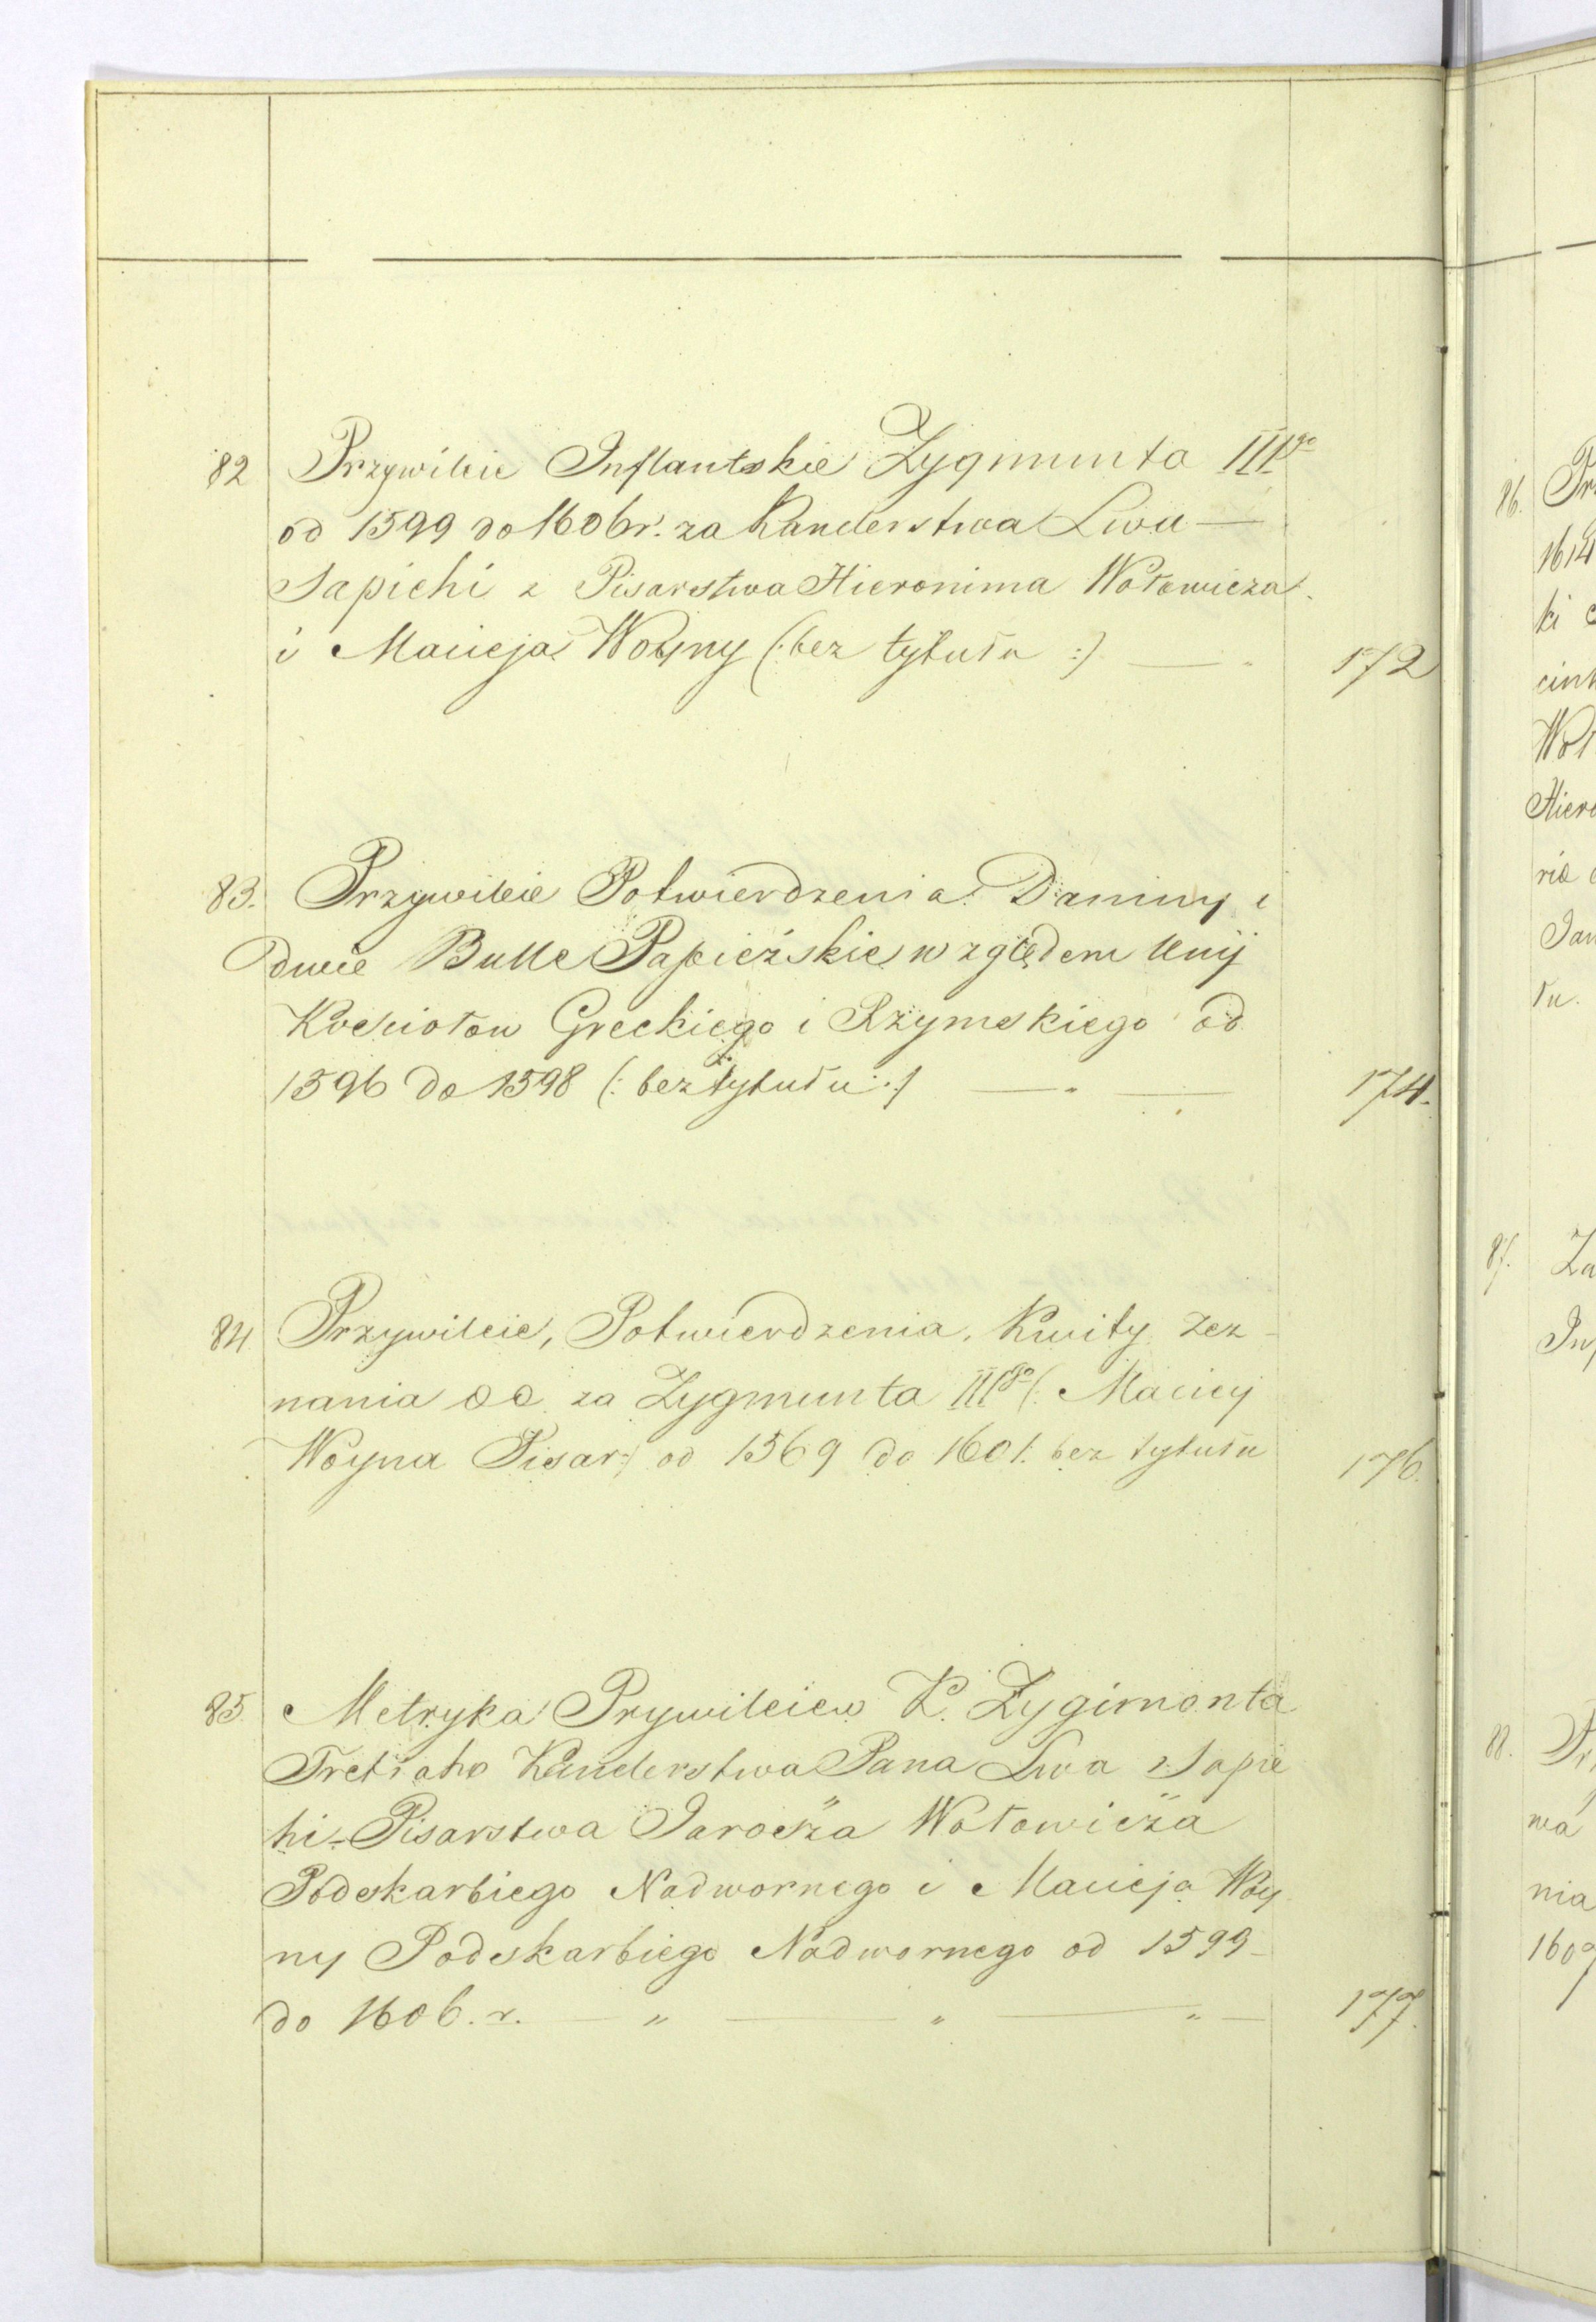 82 Przywileie Inflantskie Zygmunta III<sup>go</sup>
od 1599 do 1606 r. za Kanclerstwa Lwa —
Sapiehi z Pisarstwa Hieronima Wołowicza
i Macieja Woyny (: bez tytułu :) — 172
83. Przywileie Potwierdzenia Daniny i
dwie Bulle Papieżskie względem Unij
Kosciołow Greckiego i Rzymskiego od
1596 do 1598 (: bez tytułu :) — " — 174.
84 Przywileie, Potwierdzenia, Kwity zez-
nania za Zygmunta III<sup>go</sup> (: Maciej
Woyna Pisar :) od 1569 do 1601. bez tytułu 176.
85. Metryka Prywileiew K. Zygimonta
Tretiaho Kanclerstwa Pana Lwa Sapie
hi - Pisarstwa Jarosza Wołowicza
Podskarbiego Nadwornego i Macieja Woy
ny Podskarbiego Nadwornego od 1599 -
do 1606. r. — " — " — " — 177.
86.
1614
ki
87.
88.
nia